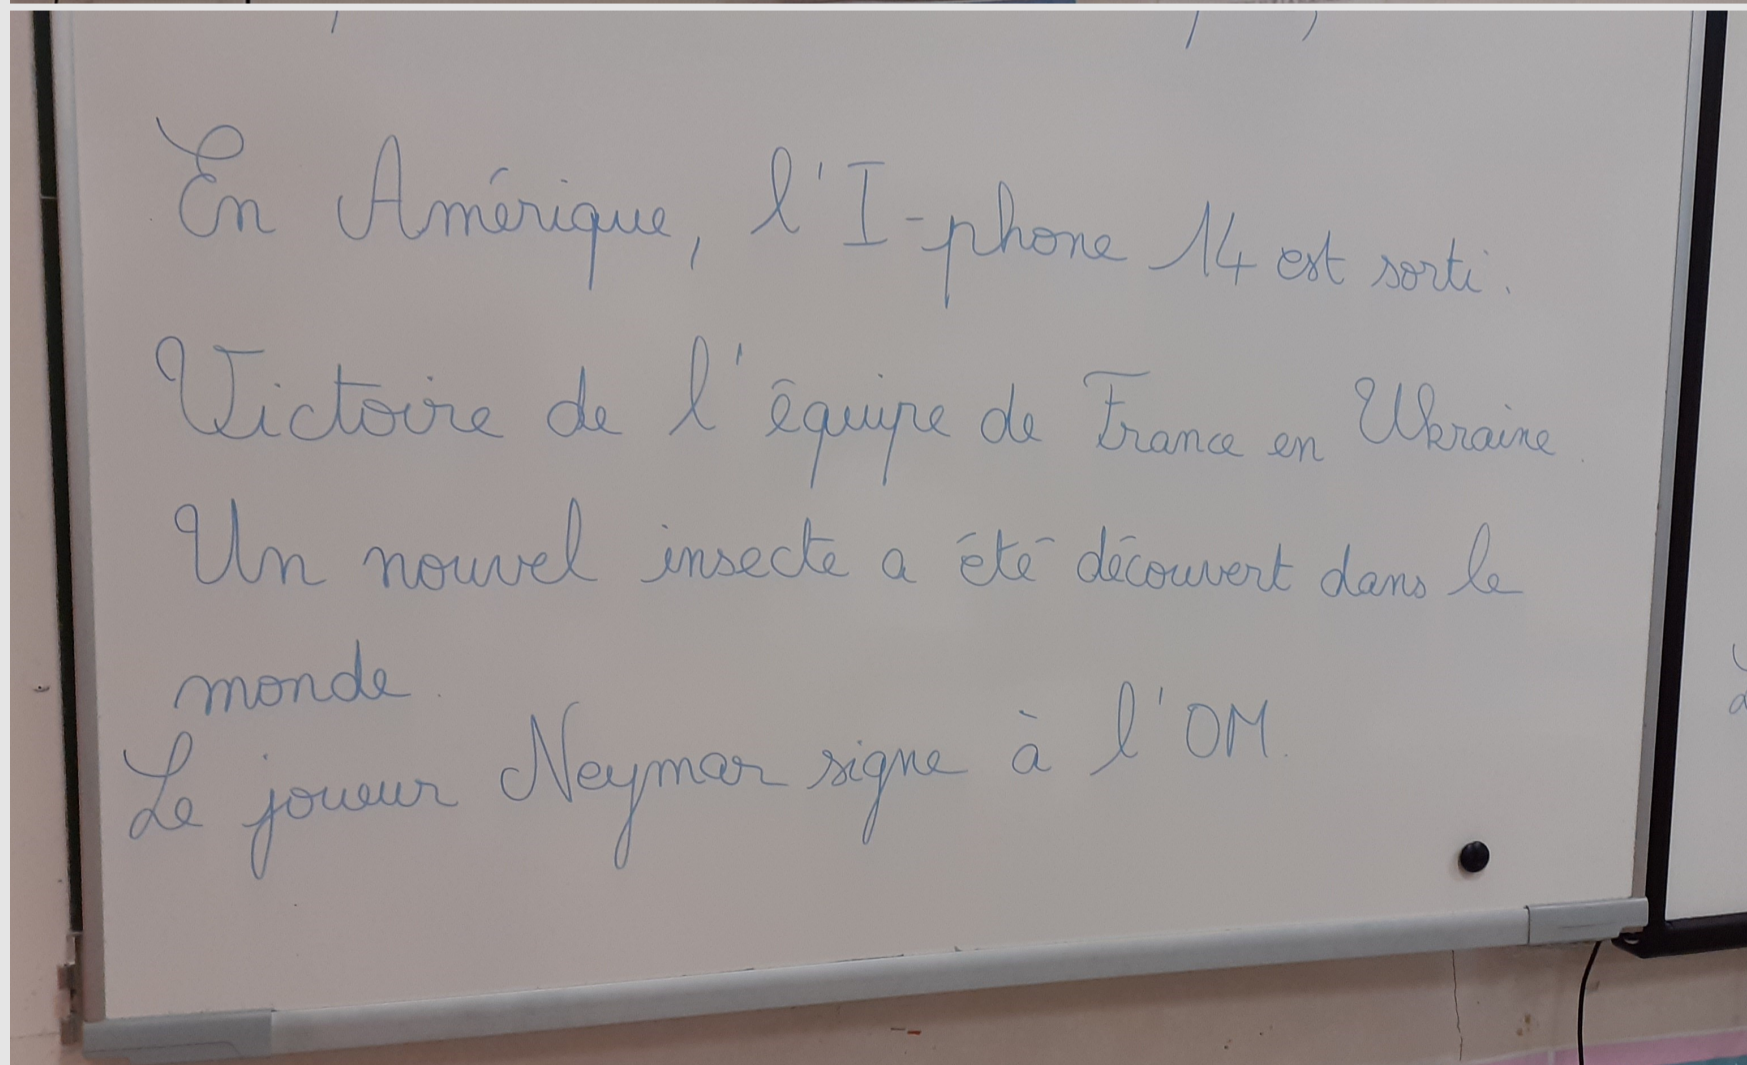 En Amérique, l'I-phone 14 est sorti.
Victoire de l'équipe de France en Ukraine.
Un nouvel insecte a été découvert dans le
monde.
Le joueur Neymar signe à l'OM.